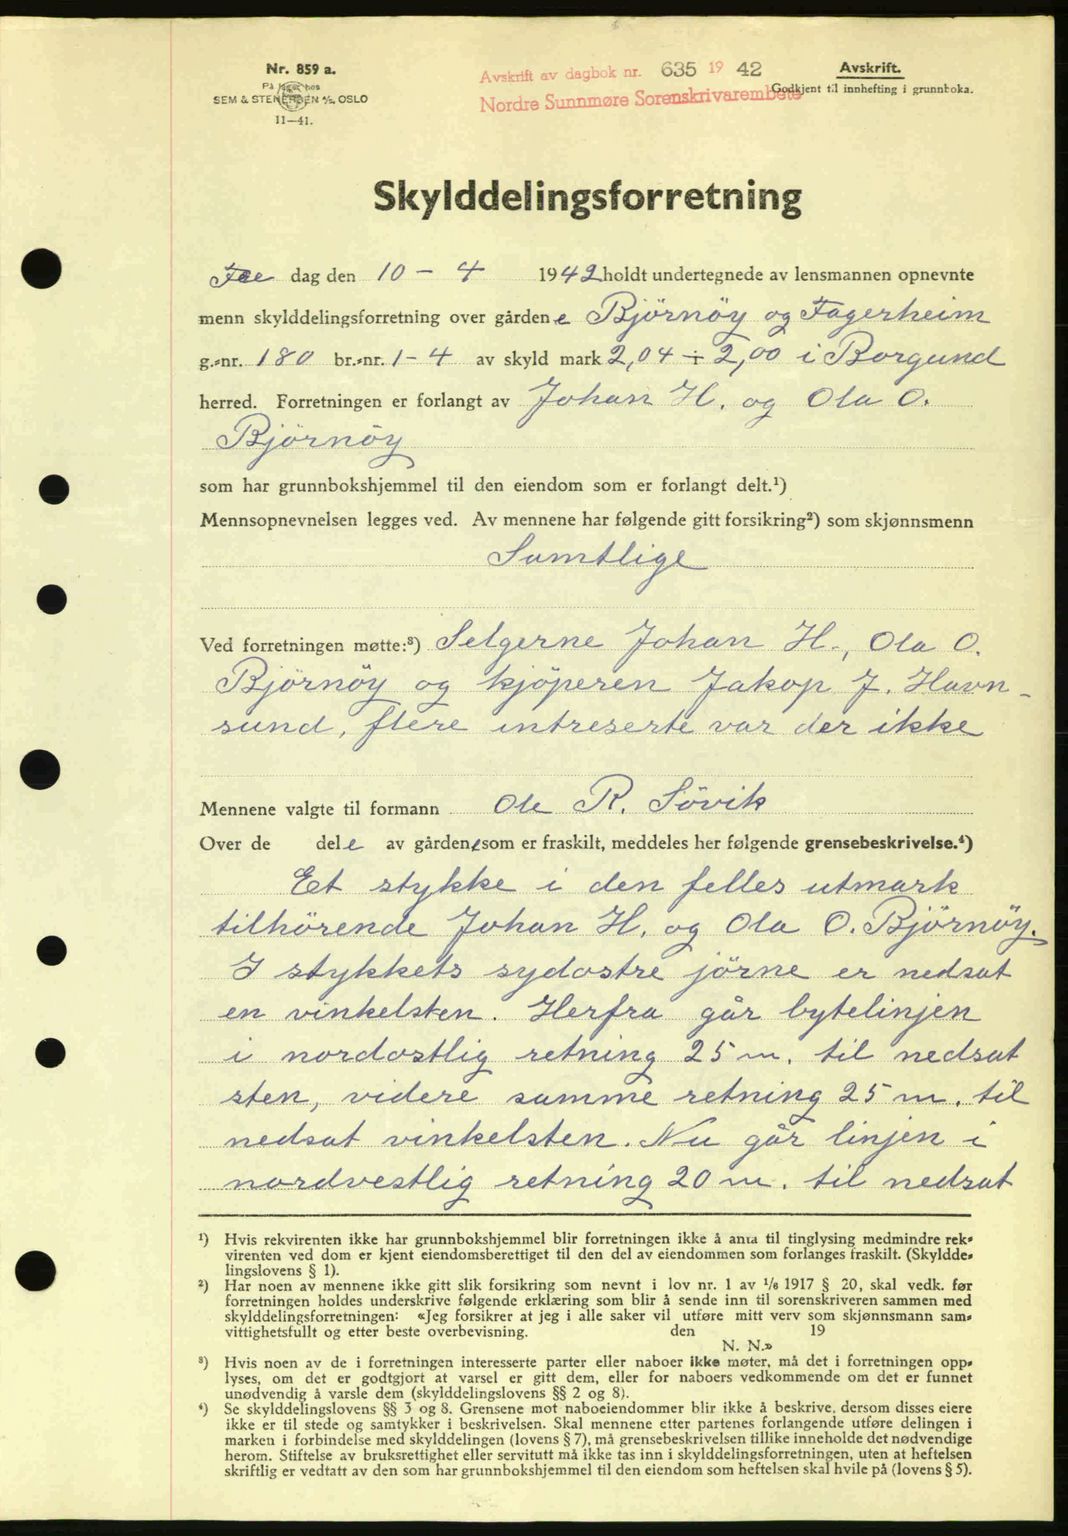 Nr. 859 a.
På lager hos
SEM & STENERSEN A/S, OSLO
11—41.
Avskrift av dagbok nr. 635 19 42
Nordre Sunnmøre Sorenskrivarembete
Avskrift.
Godkjent til innhefting i grunnboka.
Skylddelingsforretning
Fre dag den 10 - 4 1942 holdt undertegnede av lensmannen opnevnte
menn skylddelingsforretning over gårdene Björnöy og Fagerheim
g.-nr. 180 br.-nr. 1-4 av skyld mark 2,04 ÷ 2,00 i Borgund
herred. Forretningen er forlangt av Johan H. og Ola O.
Björnöy
som har grunnbokshjemmel til den eiendom som er forlangt delt.¹)
Mennsopnevnelsen legges ved. Av mennene har følgende gitt forsikring²) som skjønnsmenn
Samtlige
Ved forretningen møtte:³) Selgerne Johan H., Ola O.
Björnöy og kjöperen Jakop J. Havn-
sund, flere intreserte var der ikke
Mennene valgte til formann Ole R. Sövik
Over de dele av gårdene som er fraskilt, meddeles her følgende grensebeskrivelse.⁴)
Et stykke i den felles utmark
tilhörende Johan H. og Ola O. Björnöy.
I stykkets sydostre jörne er nedsat
en vinkelsten. Herfra går bytelinjen
i nordostlig retning 25 m. til nedsat
sten, videre samme retning 25 m. til
nedsat vinkelsten. Nu går linjen i
nordvestlig retning 20 m. til nedsat
¹) Hvis rekvirenten ikke har grunnbokshjemmel blir forretningen ikke å anta til tinglysing medmindre rek-
virenten ved dom er kjent eiendomsberettiget til den del av eiendommen som forlanges fraskilt. (Skyldde-
lingslovens § 1).
²) Har noen av mennene ikke gitt slik forsikring som nevnt i lov nr. 1 av 1/6 1917 § 20, skal vedk. før
forretningen holdes underskrive følgende erklæring som blir å sende inn til sorenskriveren sammen med
skylddelingsforretningen: «Jeg forsikrer at jeg i alle saker vil utføre mitt verv som skjønnsmann sam-
vittighetsfullt og etter beste overbevisning. den 19
N. N.»
³) Hvis noen av de i forretningen interesserte parter eller naboer ikke møter, må det i forretningen opp-
lyses, om det er godtgjort at varsel er gitt dem, eller for naboers vedkommende om det er funnet
unødvendig å varsle dem (skylddelingslovens §§ 2 og 8).
⁴) Se skylddelingslovens §§ 3 og 8. Grensene mot naboeiendommer blir ikke å beskrive, dersom disses eiere
ikke er til stede og samtykker i beskrivelsen. Skal mennene etter partenes forlangende utføre delingen i
marken i forbindelse med skylddelingen (lovens § 7), må grensebeskrivelsen tillike inneholde det nødvendige
herom. Stiftelse av bruksrettighet eller servitutt må ikke tas inn i skylddelingsforretningen, uten at heftelsen
skriftlig er vedtatt av den som har grunnbokshjemmel til den eiendom som heftelsen skal hvile på (lovens § 5).